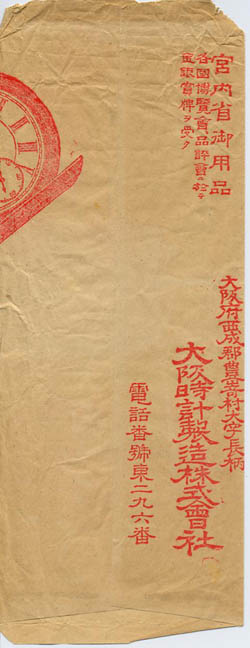 宮内省御用品
各國博覽會品評會ニ於テ
金銀賞牌ヲ受ク
大阪府西成郡豊崎村大字長柄
大阪時計製造株式會社
電話番號東二九六番